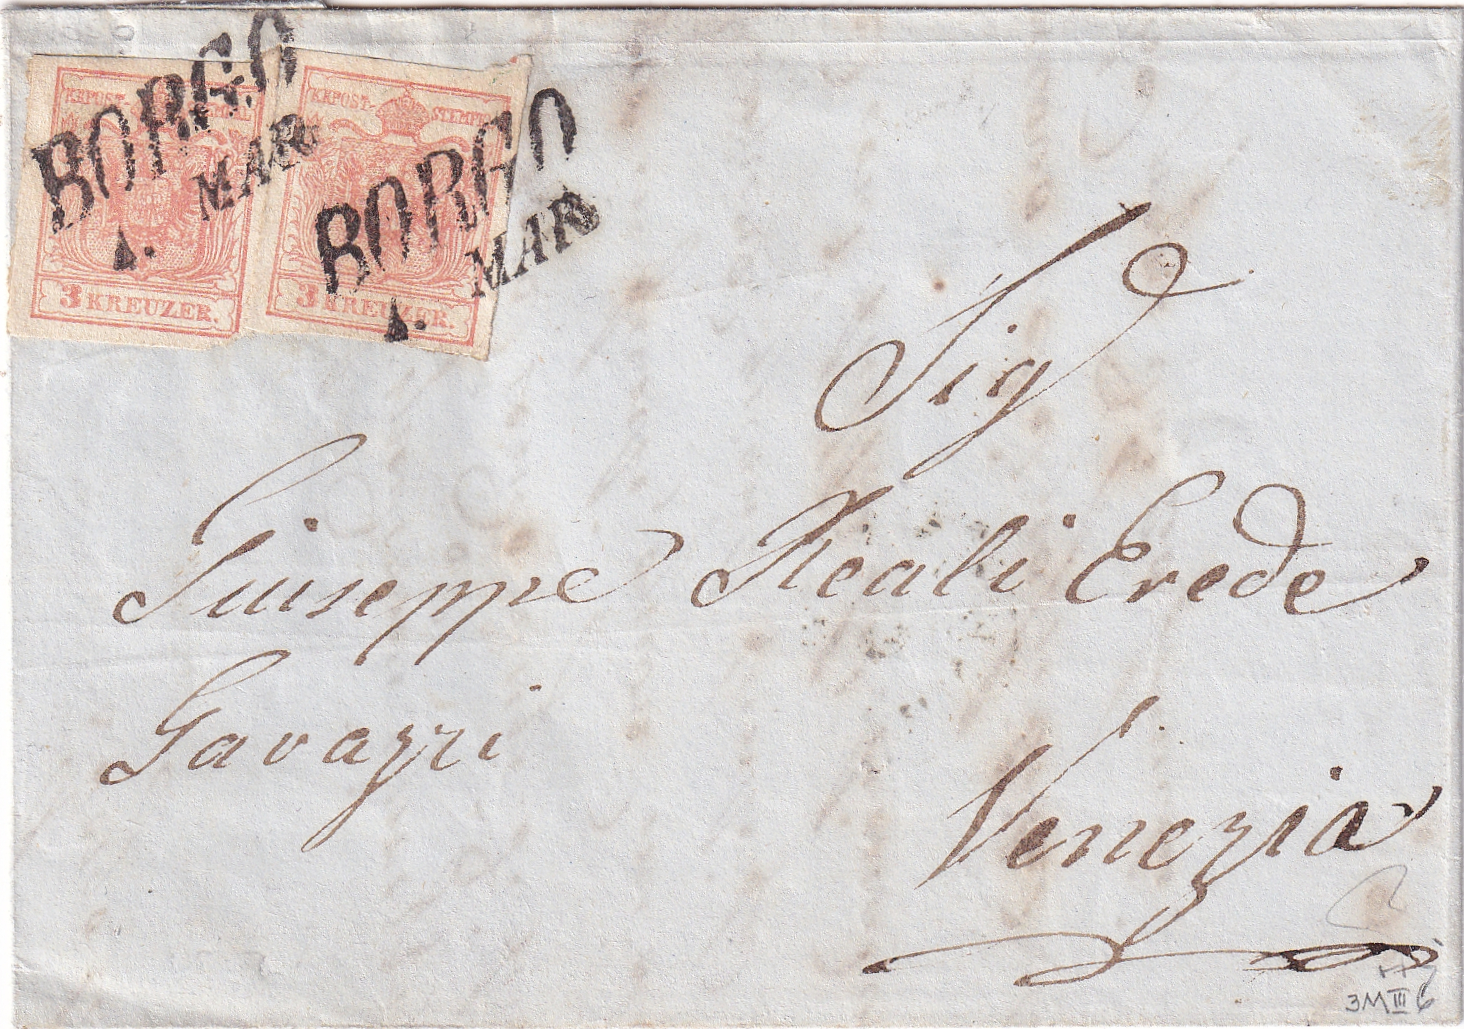 KKPOST-STEMPEL
3 KREUZER.
BORGO
1. MAR.
KKPOST-STEMPEL
3 KREUZER.
BORGO
1. MAR.
Sig
Giuseppe Reali Erede
Gavazzi
Venezia
3MIII6